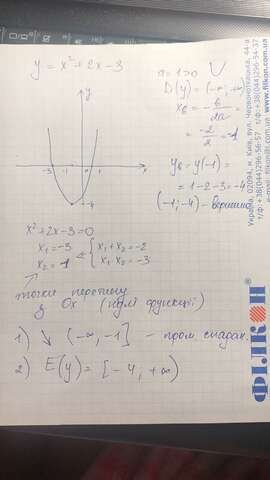 y = x² + 2x - 3
a = 1 > 0 ∪
D(y) = (-∞; ∞)
x₀ = -b/2a =
-2/2 = -1
y
-3 -1 1 x
-4
y₀ = y(-1) =
= 1 - 2 - 3 = -4
(-1; -4) - вершина
x² + 2x - 3 = 0
x₁ = -3
x₂ = 1
{ x₁ + x₂ = -2
x₁ x₂ = -3
точки перетину
з Ox (нулі функції)
1) ↘ (-∞, -1] - пром. спадан.
2) E(y) = [-4; +∞)
ФІЛКОН®
Україна, 02094, м. Київ, вул. Червоноткацька, 44-а
т/ф: +38(044)296-56-57 т/ф: +38(044)296-34-37
www.filkon.com.ua